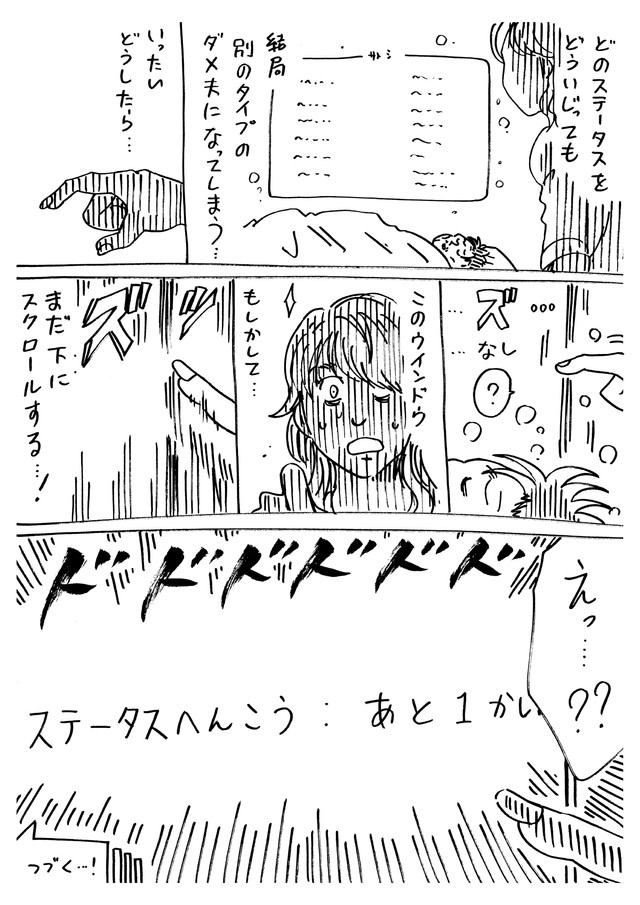 どのステータスを
どういじっても
サトシ
結局
別のタイプの
ダメ夫になってしまう…
いったい
どうしたら…
…ズ…
…なし
?
このウインドウ
もしかして…
ズッ
まだ下に
スクロールする…!
えっ……
??
ドドドドドド
ステータスへんこう：あと1かい
つづく…!